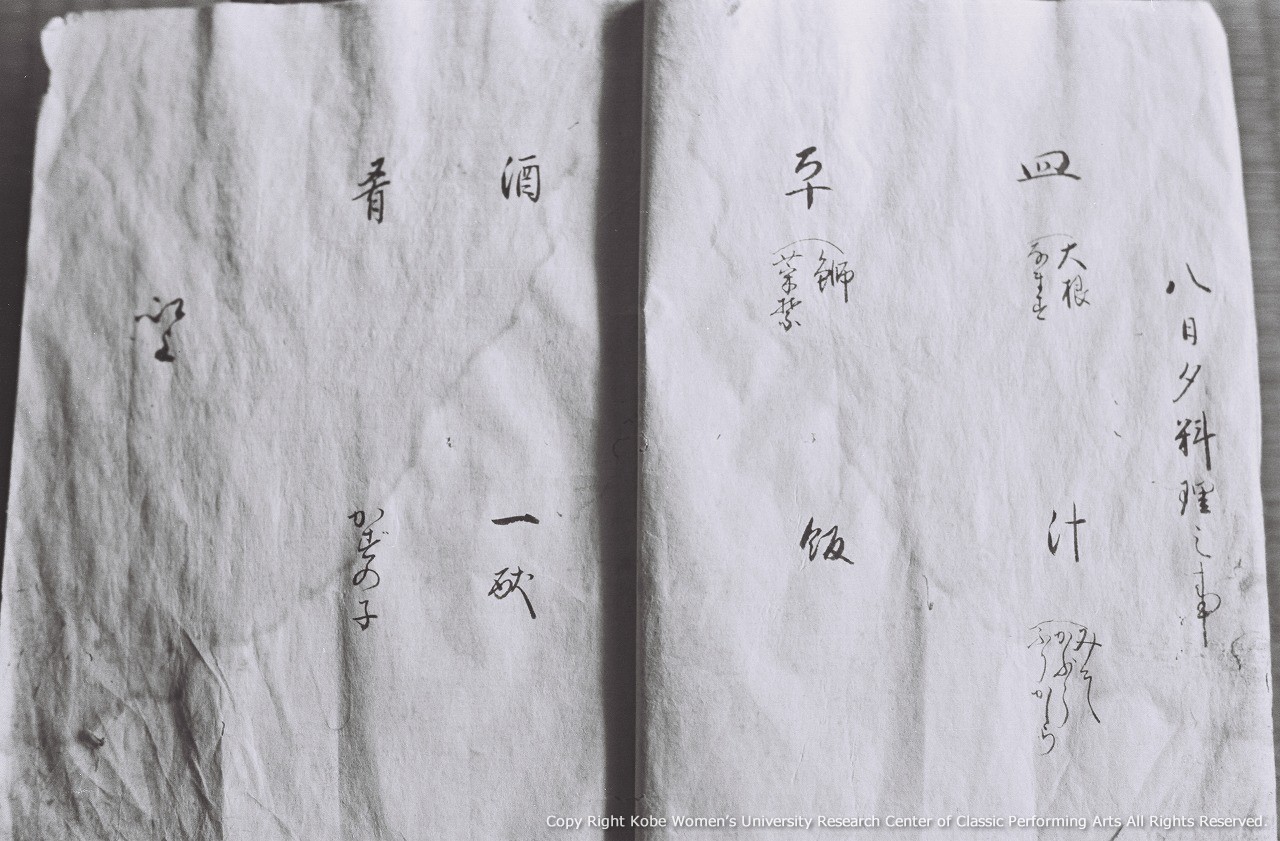 八日夕料理之事
皿 大根 なます
汁 みそ かぶら ふりかしら
平 鰤 菜
飯
酒 一献
肴 かずの子
Copy Right Kobe Women's University Research Center of Classic Performing Arts All Rights Reserved.